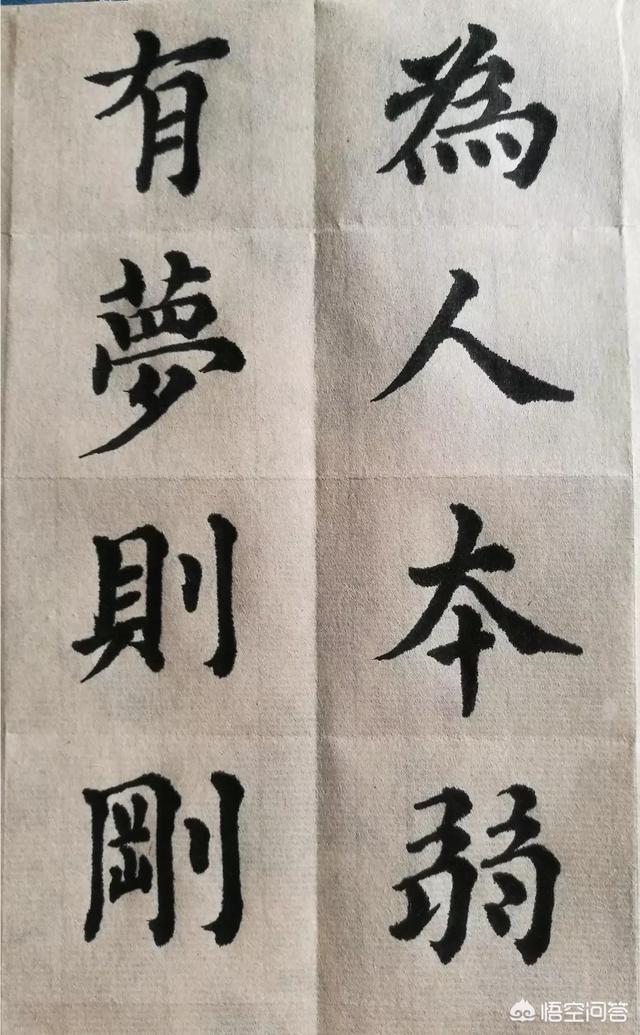 為人本弱
有夢則剛
悟空问答